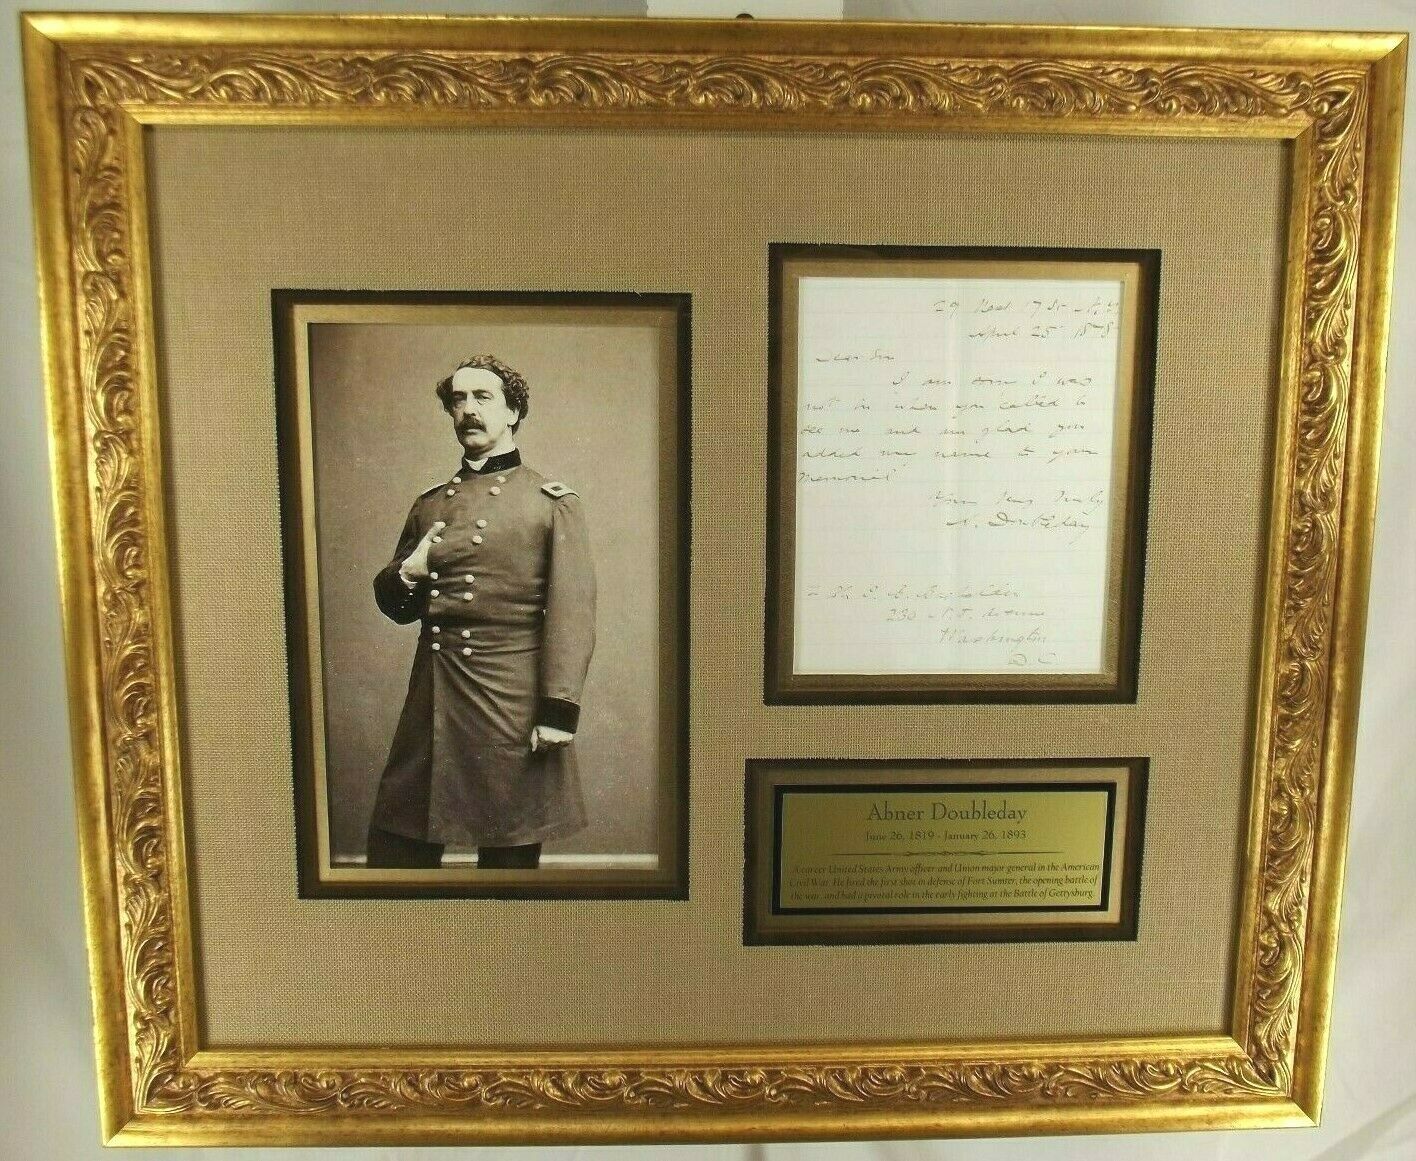 29 West 17 St - N.Y
April 25 1878
Dear Sir
I am sorry I was
not in when you called to
see me and am glad you
added my name to your
Memorial
Yours Very Truly
A. Doubleday
230 N.J. Avenue
Washington
D C
Abner Doubleday
June 26, 1819 - January 26, 1893
A career United States Army officer and Union major general in the American
Civil War. He fired the first shot in defense of Fort Sumter, the opening battle of
the war, and had a pivotal role in the early fighting at the Battle of Gettysburg.